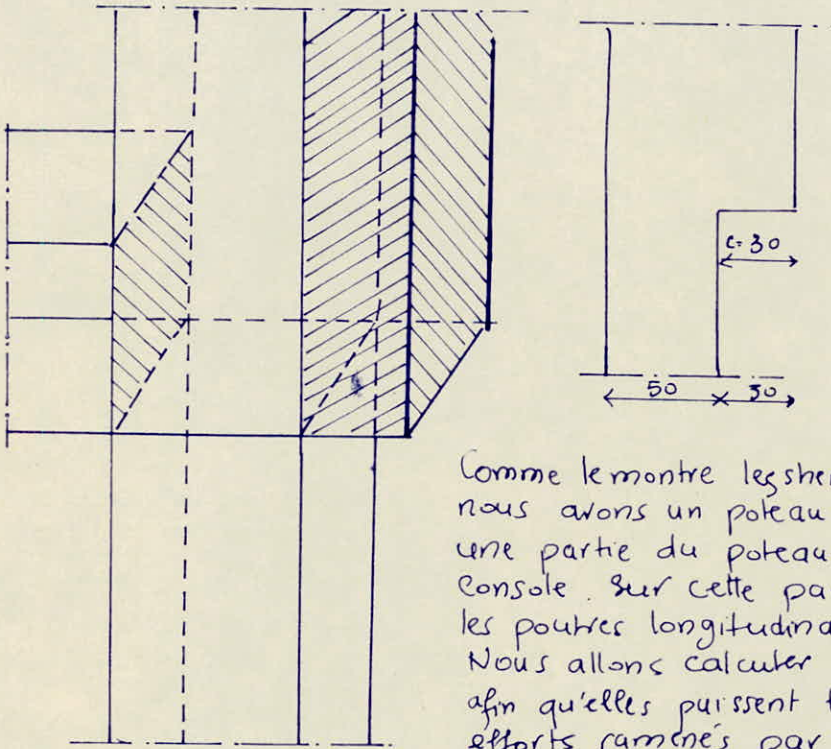 c=30
50 30
Comme le montre
nous avons un poteau
une partie du poteau
console. Sur cette
les poutres
Nous allons calculer
afin qu'elles puissent
efforts ramenés par